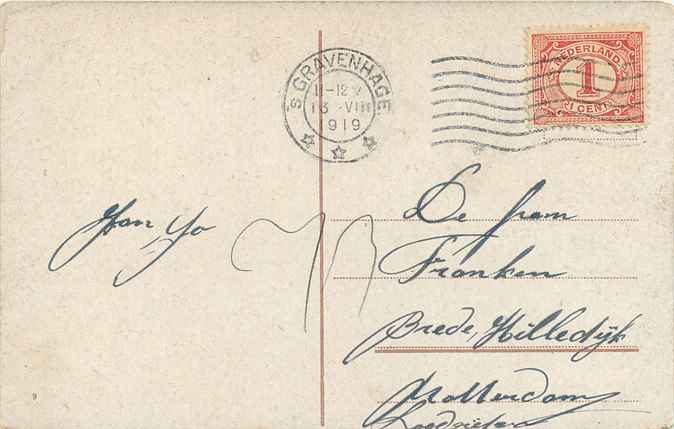 'S GRAVENHAGE
11-12 V
13 VIII
1919
NEDERLAND
1
1 CENT
De fram
Franken
Brede Hilledijk
Rotterdam